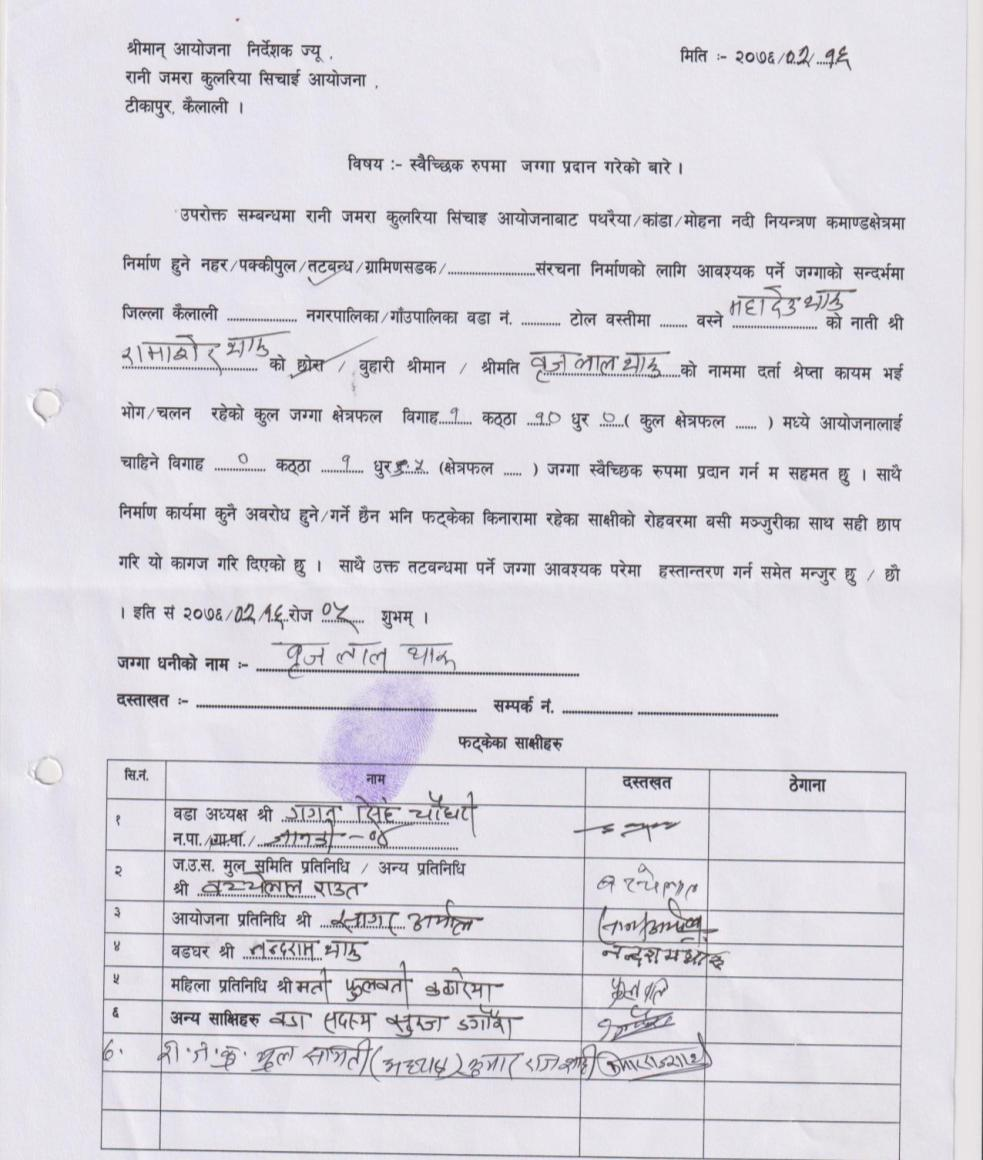 श्रीमान् आयोजना निर्देशक ज्यू ,
मिति :- २०७६/02/१६
रानी जमरा कुलरिया सिचाई आयोजना ,
टीकापुर, कैलाली ।
विषय :- स्वैच्छिक रुपमा जग्गा प्रदान गरेको बारे ।
उपरोक्त सम्बन्धमा रानी जमरा कुलरिया सिंचाइ आयोजनाबाट पथरैया/कांडा/मोहना नदी नियन्त्रण कमाण्डक्षेत्रमा
निर्माण हुने नहर/पक्कीपुल/तटबन्ध/ग्रामिणसडक/........................संरचना निर्माणको लागि आवश्यक पर्ने जग्गाको सन्दर्भमा
जिल्ला कैलाली ................... नगरपालिका/गाँउपालिका वडा नं. ........... टोल वस्तीमा ........ वस्ने महादेउ थारु को नाती श्री
थारु को छोरा / बुहारी श्रीमान / श्रीमति वृज लाल थारु को नाममा दर्ता श्रेष्ता कायम भई
भोग/चलन रहेको कुल जग्गा क्षेत्रफल विगाह १ कठ्ठा १० धुर ० ( कुल क्षेत्रफल ...... ) मध्ये आयोजनालाई
चाहिने विगाह ० कठ्ठा १ धुर ५ (क्षेत्रफल ..... ) जग्गा स्वैच्छिक रुपमा प्रदान गर्न म सहमत छु । साथै
निर्माण कार्यमा कुनै अवरोध हुने/गर्ने छैन भनि फट्केका किनारामा रहेका साक्षीको रोहवरमा बसी मञ्जुरीका साथ सही छाप
गरि यो कागज गरि दिएको छु । साथै उक्त तटवन्धमा पर्ने जग्गा आवश्यक परेमा हस्तान्तरण गर्न समेत मन्जुर छु / छौ
। इति सं २०७६/02/१६ रोज ०५ शुभम् ।
जग्गा धनीको नाम :- वृज लाल थारु
दस्ताखत :- ........................ सम्पर्क नं. ........................
फट्केका साक्षीहरु
सि.नं. नाम दस्तखत ठेगाना
१ वडा अध्यक्ष श्री गगन सिंह चौधरी
न.पा./गा.पा./ जानकी -
२ ज.उ.स. मुल समिति प्रतिनिधि / अन्य प्रतिनिधि
श्री बच्चेलाल राउत
३ आयोजना प्रतिनिधि श्री सागर
४ वडघर श्री नन्दराम थारु नन्दराम थारु
५ महिला प्रतिनिधि श्रीमती फुलवती कठरिया फुलवति
६ अन्य साक्षिहरु वडा सदस्य डगौरा
रा. ज. कु. मुल समिती (अध्यक्ष) कुमार राज शाही